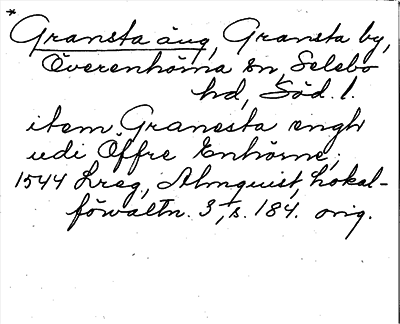 *
Gransta äng, Gransta by,
Överenhörna sn, Selebo
hd, Söd. l.
item Granesta engh
udi Öffre Enhörne,
1544 Lreg., Almquist, Lokal-
förvaltn. 3, s. 184. orig.